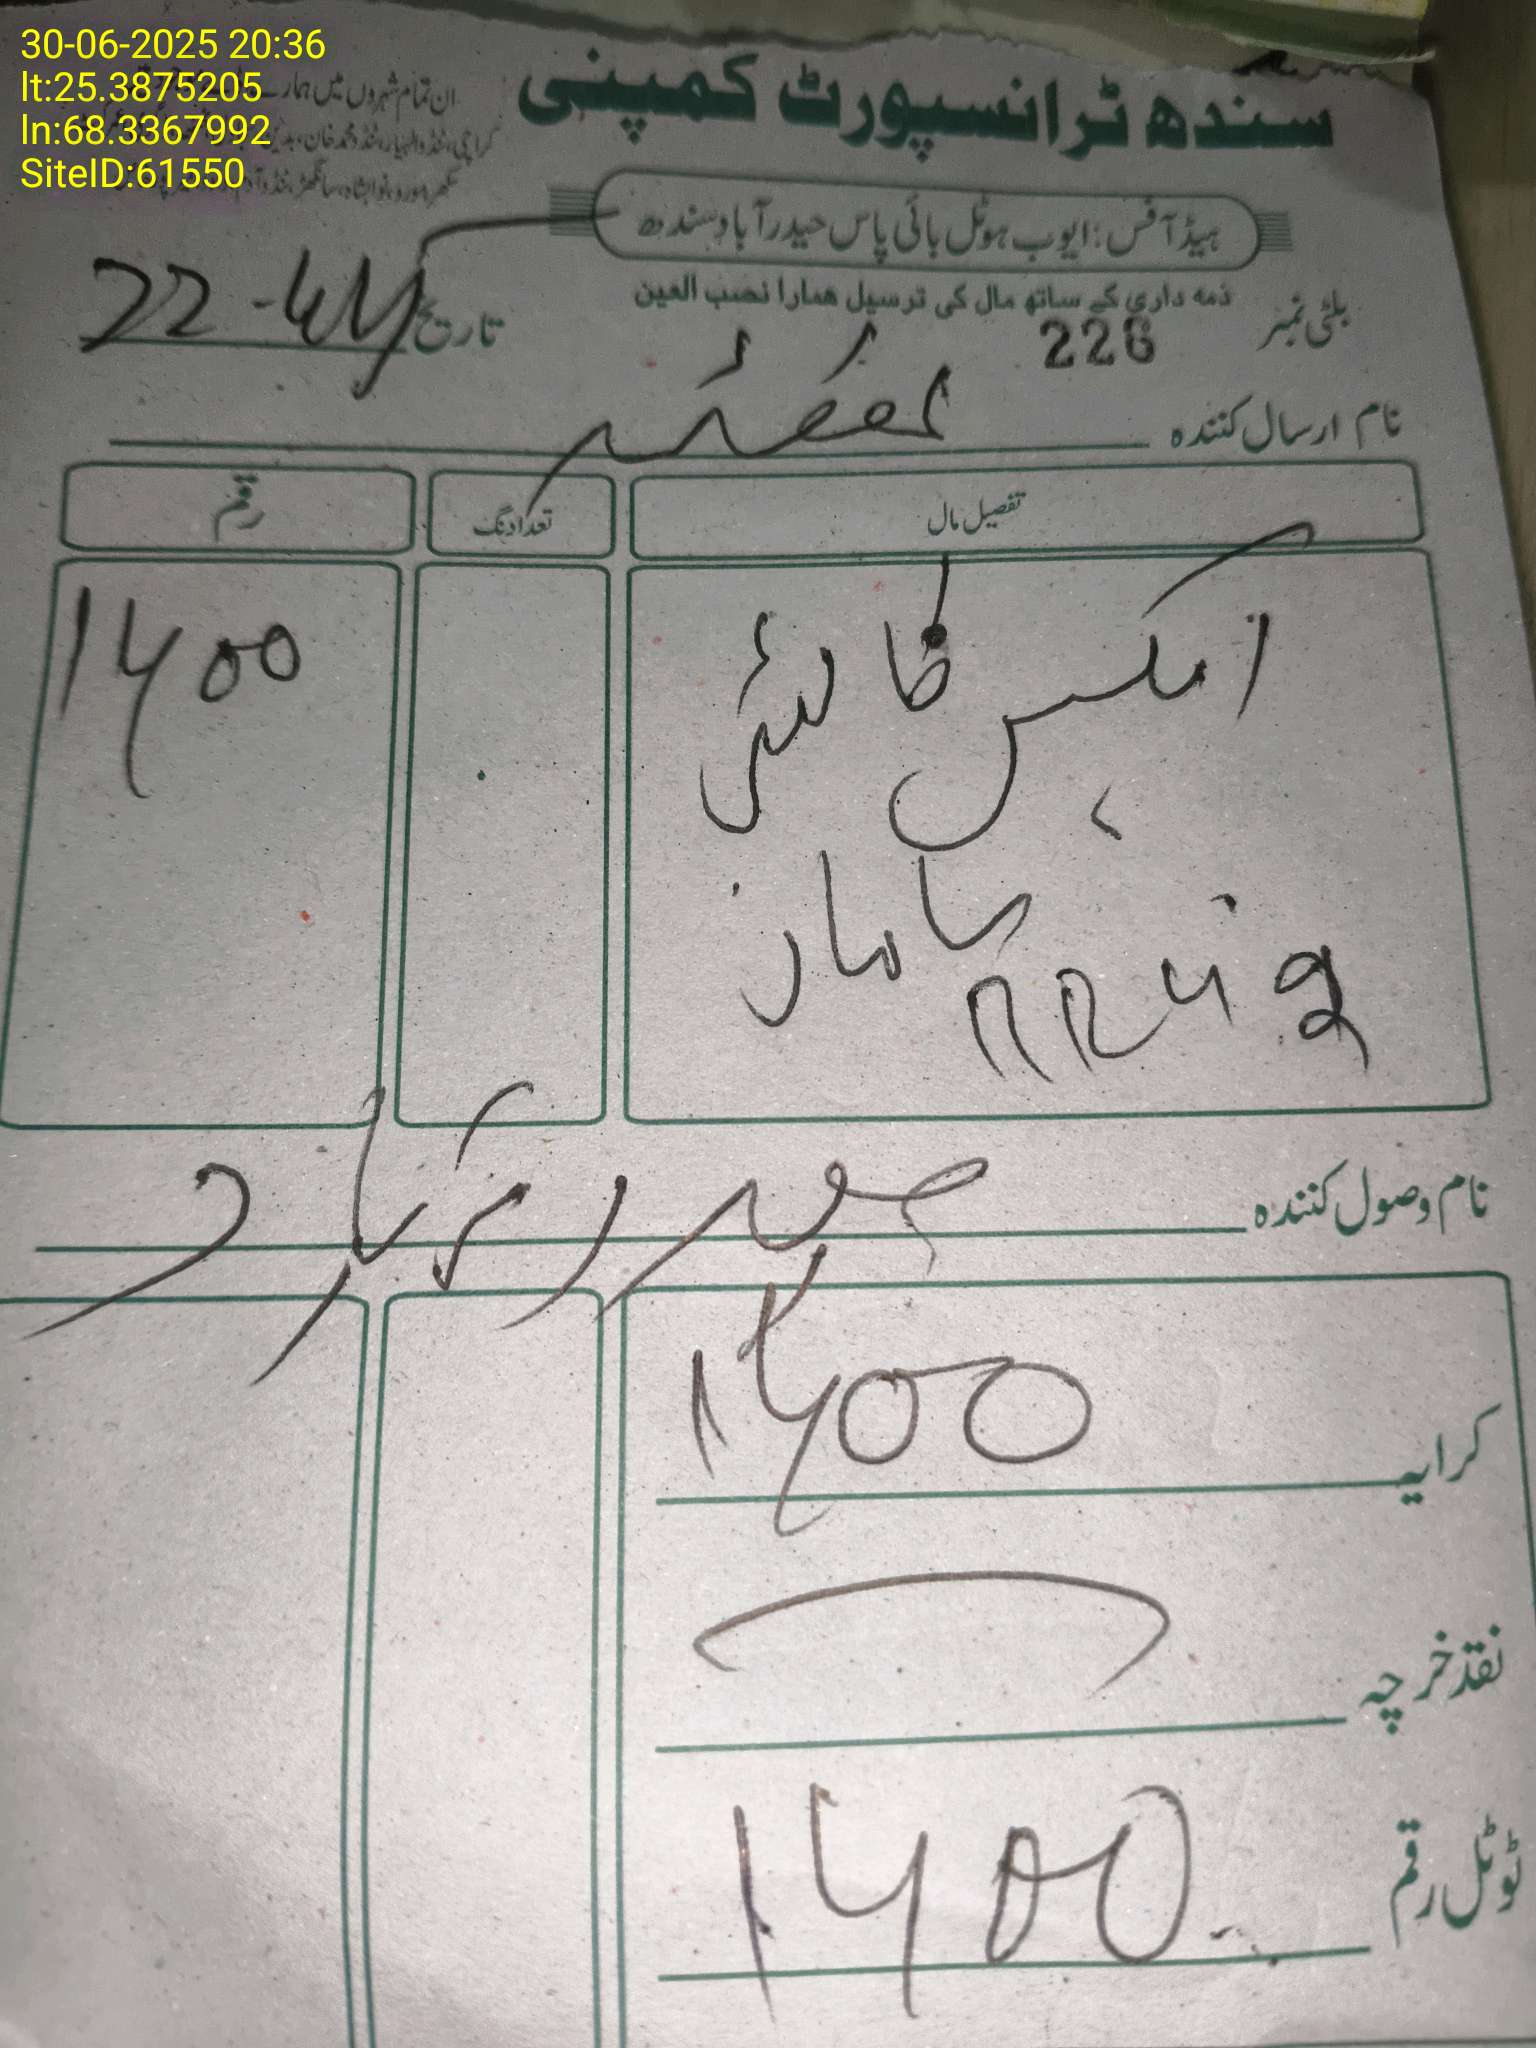 30-06-2025 20:36
lt:25.3875205
ln:68.3367992
SiteID:61550
سندھ ٹرانسپورٹ کمپنی
ان تمام شہروں میں ہمارے
کراچی، ٹنڈوالہیار، ٹنڈو محمد خان، بدین
سکھر، مورو، نوابشاہ، سانگھڑ، ٹنڈو آدم
ہیڈ آفس: ایوب ہوٹل بائی پاس حیدرآباد سندھ
ذمہ داری کے ساتھ مال کی ترسیل ہمارا نصب العین
بلٹی نمبر 226
تاریخ 22-
نام ارسال کنندہ
تفصیل مال تعداد نگ رقم
ایکس 1400
سامان
نام وصول کنندہ حیدرآباد
کرایہ 1400
نقد خرچہ
ٹوٹل رقم 1400